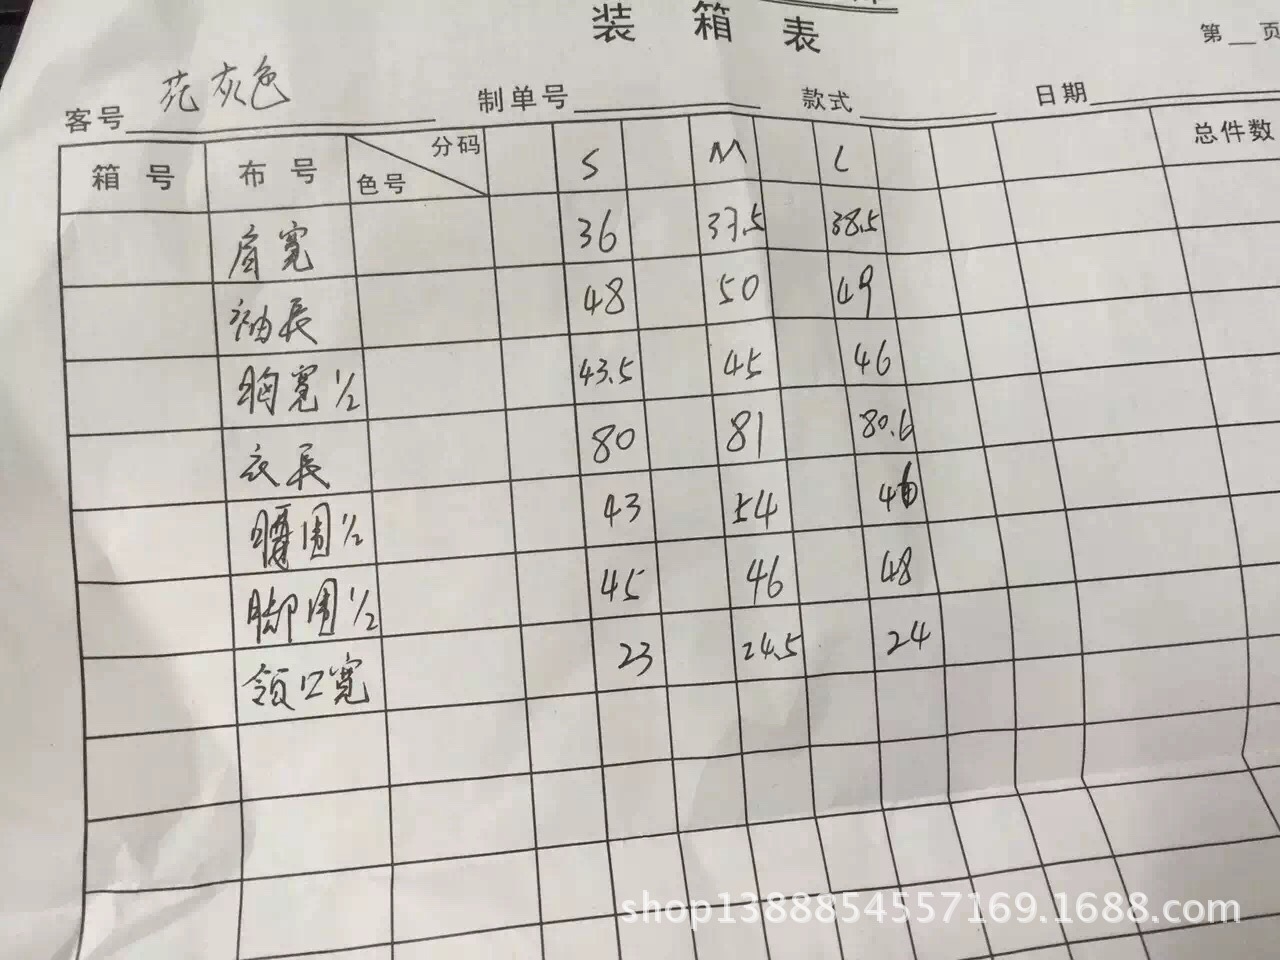 装箱表
第__页
客号 花灰色 制单号 款式 日期
箱号 布号 分码 色号 S M L 总件数
肩寬 36 37.5 38.5
袖長 48 50 49
胸寬 1/2 43.5 45 46
衣長 80 81 80.6
腰围 1/2 43 54 46
脚围 1/2 45 46 48
领口寬 23 24.5 24
shop1388854557169.1688.com